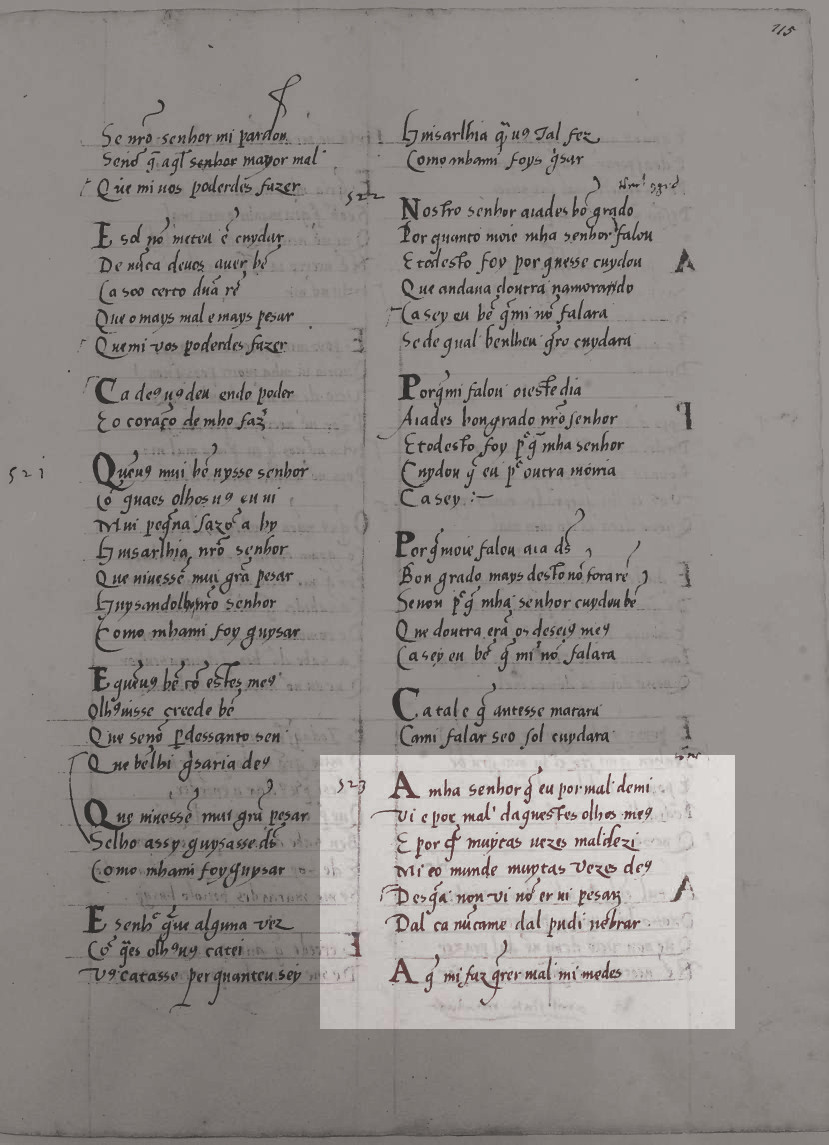 115
Se nr̃o senhor mi pardon
Senõ q̃ aql̃ senhor mayor mal
Que mi uos poderdes fazer
E sol nõ meteu ẽ cuydar
De nũca deuos auer bẽ
Ca soo certo dũa rẽ
Que o mays mal e mays pesar
Quemi vos poderdes fazer
Ca deꝯ uꝯ deu endo poder
Eo coraçõ de mho faz̃
521
Queuꝯ mui bẽ uysse senhor
Cõ quaes olhos uꝯ eu ui
Mui peq̃na sazõ a hy
Guisarlhia nr̃o senhor
Que uiuessẽ mui grã pesar
Guysandolho nr̃o senhor
Como mhami foy guysar
E queuꝯ bẽ cõ estes meꝯ
Olhꝯ uisse creede bẽ
Que senõ perdessanto sen
Que bẽlhi g̃saria deꝯ
Que uiuessẽ mui grã pesar
Selho assy guysasse ds̃
Como mhami foy guysar
E senhr̃ q̃ue alguna vez
Cõ q̃es olhꝯ uꝯ catei
Vꝯ catasse per quanteu sey
Guisarlhia q̃ uꝯ tal fez
Como mhami foys g̃sar
522
Nostro senhor aiades bõ grado
Por quanto moie mha senhor falou
E todesto foy por quesse cuydou
Que andaua doutra namorando
Ca sey eu bẽ q̃mi nõ falara
Se de qual benlheu q̃ro cuydara
A
Porq̃mi falou oieste dia
Aiades bongrado nr̃o senhor
E todesto foy p̃ q̃ mha senhor
Cuydou q̃ eu p̃ outra moiria
Ca sey :—
P
Porq̃moie falou aia ds̃
Bon grado mays desto nõ fora rẽ
Senon p̃ q̃ mha senhor cuydou bẽ
Que doutra erã os deseiꝯ meꝯ
Ca sey eu bẽ q̃ mi nõ falara
Ca tal e q̃ antesse matara
Cami falar seo sol cuydara
523
A mha senhor q̃ eu por mal demi
Vi e por mal daquestes olhos meꝯ
E por q̃ muytas uezes maldezi
Mi eo munde muytas vezes deꝯ
Des q̃a non vi nõ er ui pesar
Dal ca nũcame dal pudi nẽbrar
A
A q̃ mi faz q̃rer mal mi medes